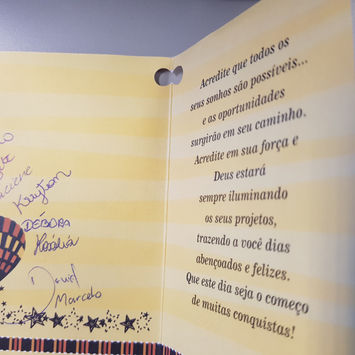 Kayton
DÉBORA
David
Marcelo
Acredite que todos os
seus sonhos são possíveis...
e as oportunidades
surgirão em seu caminho.
Acredite em sua força e
Deus estará
sempre iluminando
os seus projetos,
trazendo a você dias
abençoados e felizes.
Que este dia seja o começo
de muitas conquistas!